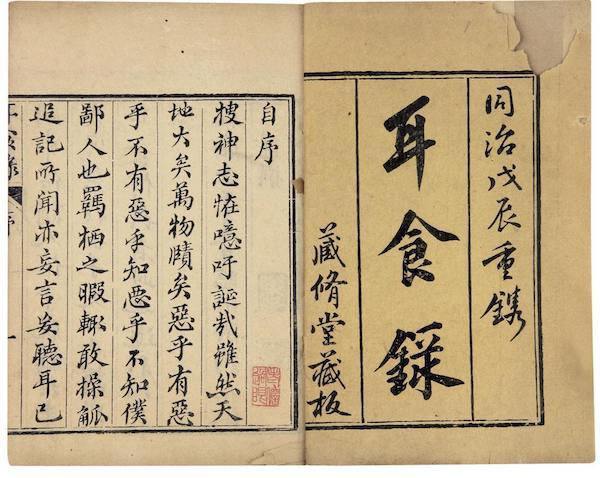 同治戊辰重鐫
耳食錄
藏脩堂藏板
自序
搜神志怪噫吁誕哉雖然天
地大矣萬物賾矣惡乎有惡
乎不有惡乎知惡乎不知僕
鄙人也羈栖之暇輙敢操觚
追記所聞亦妄言妄聽耳已
耳食錄 序 一